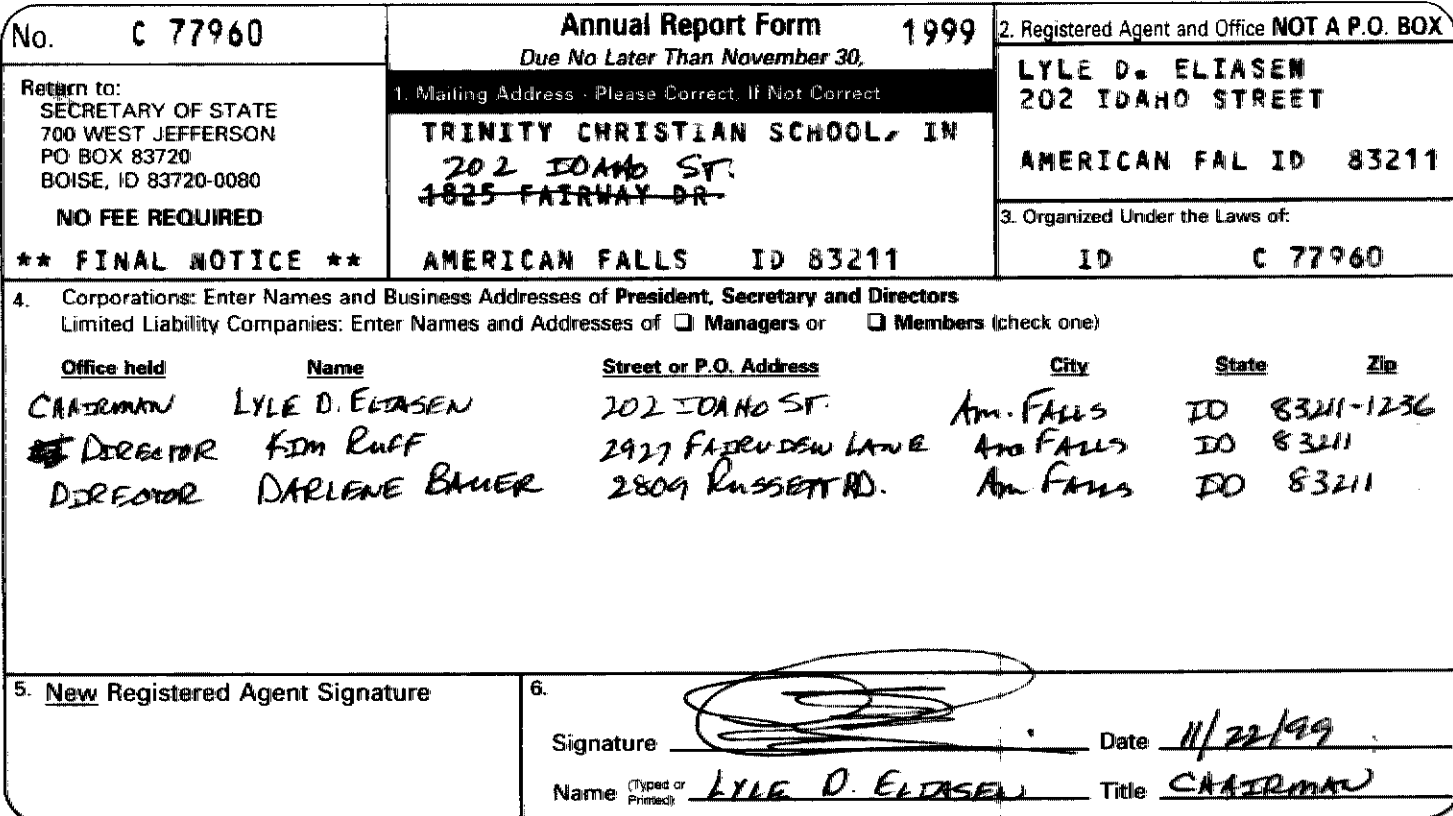 No. C 77960
Annual Report Form 1999
Due No Later Than November 30,
Return to:
SECRETARY OF STATE
700 WEST JEFFERSON
PO BOX 83720
BOISE, ID 83720-0080
NO FEE REQUIRED
** FINAL NOTICE **
1. Mailing Address - Please Correct, If Not Correct
TRINITY CHRISTIAN SCHOOL, IN
202 IDAHO ST.
1825 FAIRWAY DR
AMERICAN FALLS ID 83211
2. Registered Agent and Office NOT A P.O. BOX
LYLE D. ELIASEN
202 IDAHO STREET
AMERICAN FAL ID 83211
3. Organized Under the Laws of:
ID C 77960
4. Corporations: Enter Names and Business Addresses of President, Secretary and Directors
Limited Liability Companies: Enter Names and Addresses of ❑ Managers or ❑ Members (check one)
Office held Name Street or P.O. Address City State Zip
CHAIRMAN LYLE D. ELIASEN 202 IDAHO ST. Am. FALLS ID 83211-1236
DIRECTOR KIM RUFF 2927 FAIRVIEW LANE Am FALLS ID 83211
DIRECTOR DARLENE BAUER 2809 RUSSETT RD. Am FALLS ID 83211
5. New Registered Agent Signature
6.
Signature Date 11/22/99
Name (Typed or Printed) LYLE D. ELIASEN Title CHAIRMAN